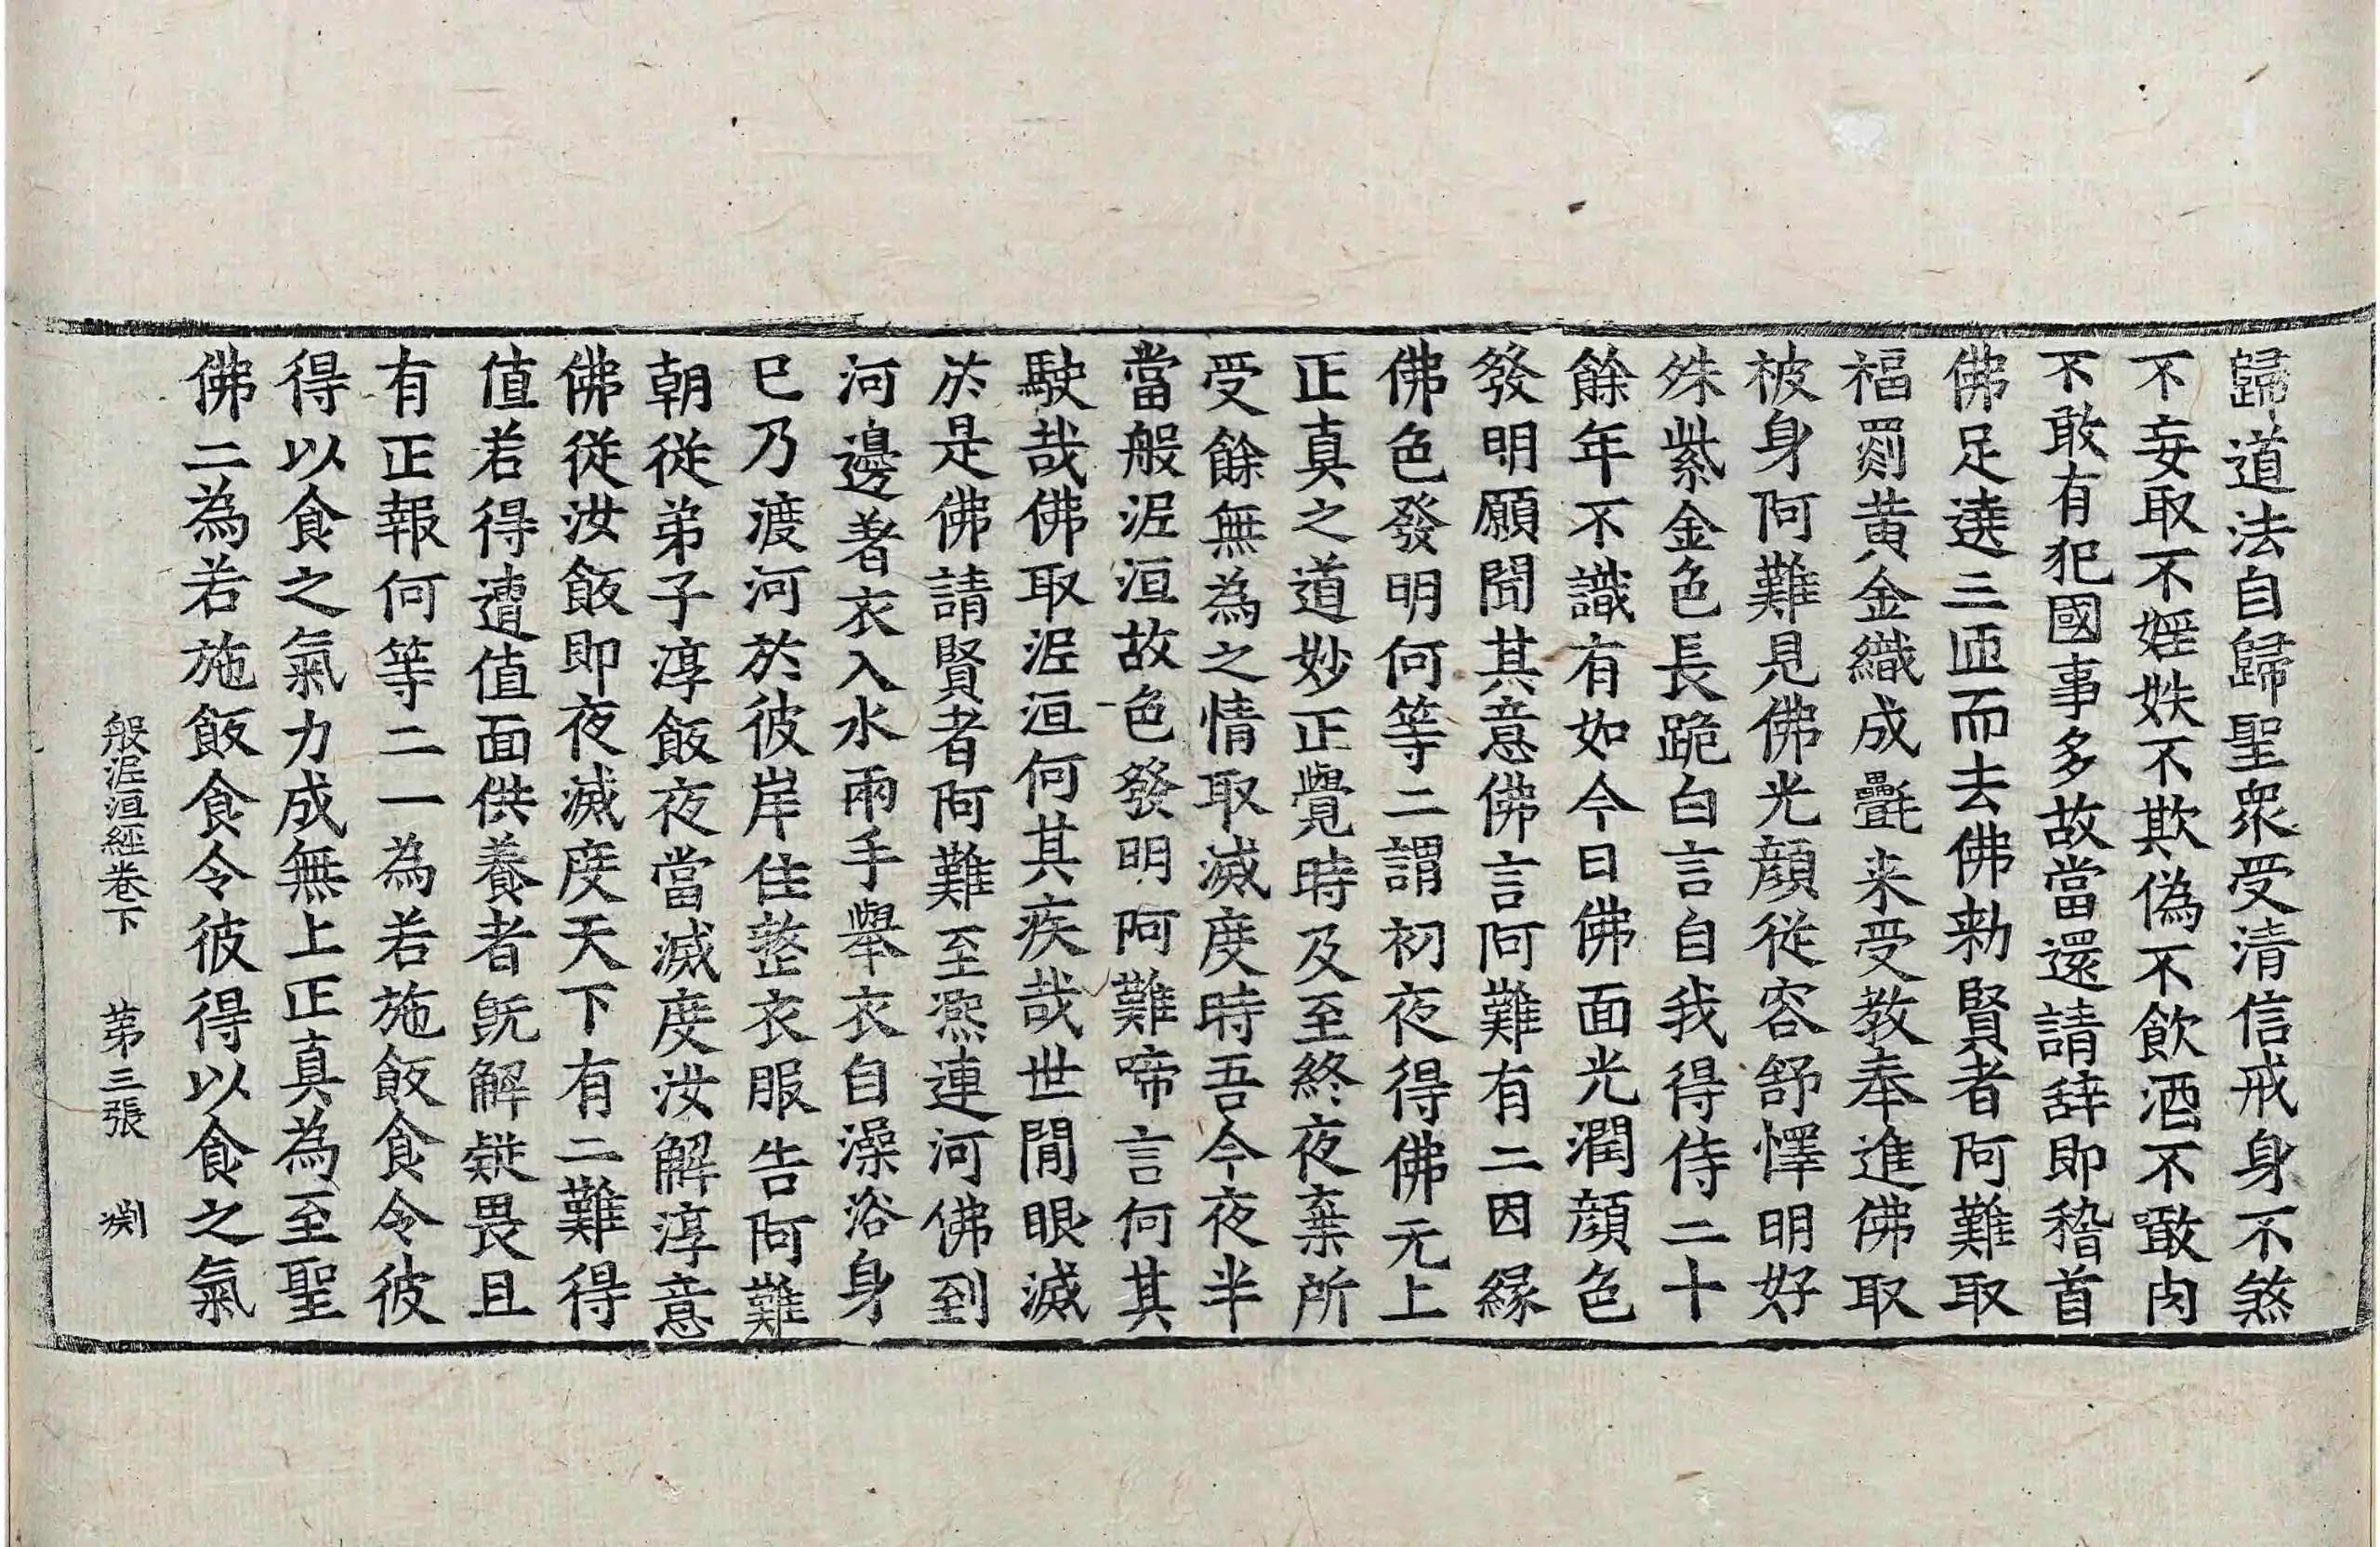 歸道法自歸聖衆受清信戒身不煞
不妄取不婬妷不欺偽不飲酒不噉肉
不敢有犯國事多故當還請辝即稽首
佛足遶三匝而去佛勑賢者阿難取
福罽黄金織成㲲来受教奉進佛取
被身阿難見佛光顔從容舒懌明好
殊紫金色長跪白言自我得侍二十
餘年不識有如今日佛面光潤顔色
發明願聞其意佛言阿難有二因縁
佛色發明何等二謂初夜得佛无上
正真之道妙正覺時及至終夜棄所
受餘無為之情取滅度時吾今夜半
當般泥洹故色發明阿難啼言何其
駛哉佛取泥洹何其疾哉世間眼滅
於是佛請賢者阿難至凞連河佛到
河邊著衣入水兩手舉衣自澡浴身
已乃渡河於彼岸住整衣服告阿難
朝從弟子淳飯夜當滅度汝解淳意
佛從汝飯即夜滅度天下有二難得
值若得遭值面供養者旣解疑畏且
有正報何等二一為若施飯食令彼
得以食之氣力成無上正真為至聖
佛二為若施飯食令彼得以食之氣
般泥洹經卷下 第三張 渕